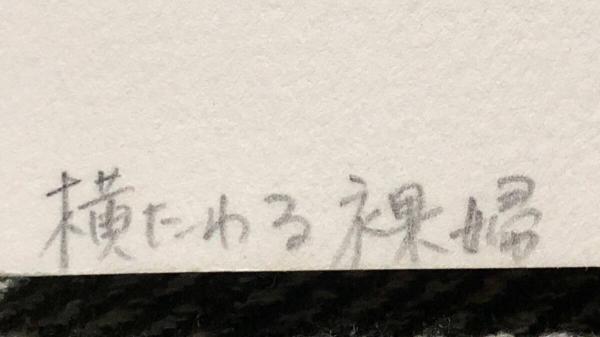 横たわる裸婦